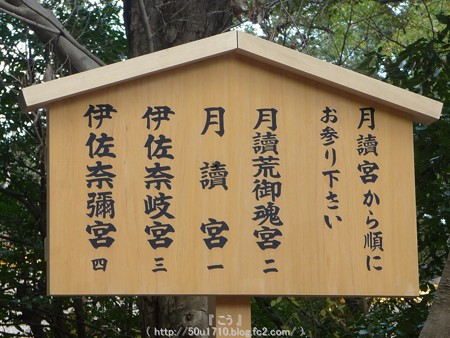 月讀宮から順に
お参り下さい
月讀荒御魂宮 二
月讀宮 一
伊佐奈岐宮 三
伊佐奈彌宮 四
『こう』
( http://50u1710.blog.fc2.com/ )